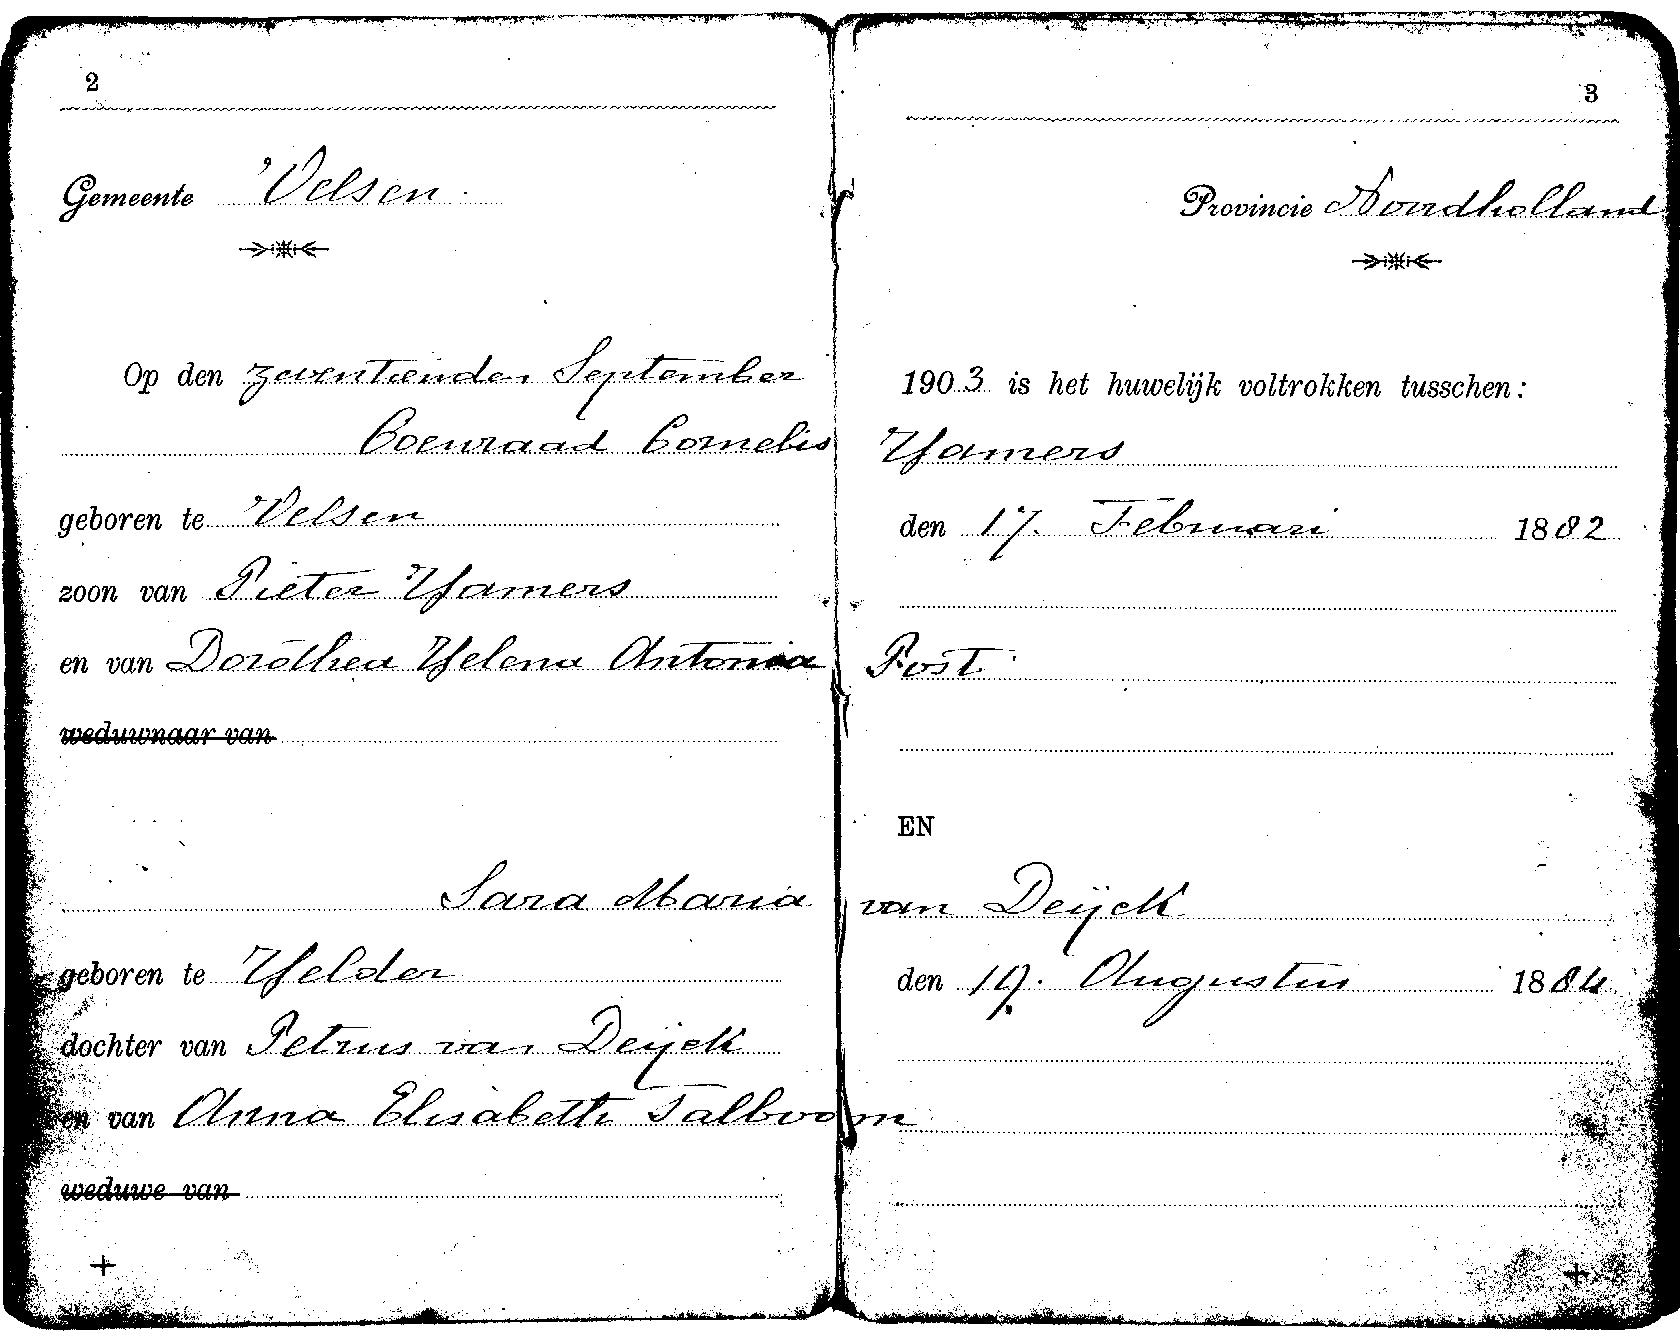 2
Gemeente Velsen.
Op den zeventienden September
Coenraad Cornelis
geboren te Velsen
zoon van Pieter Hamers
en van Dorothea Helena Antonia
weduwnaar van
Sara Maria
geboren te Helder
dochter van Petrus van Deijck
en van Anna Elisabeth Talboom
weduwe van
3
Provincie Noordholland
1903 is het huwelijk voltrokken tusschen:
Hamers
den 17. Februari 1882
Post.
EN
van Deijck
den 19. Augustus 1884